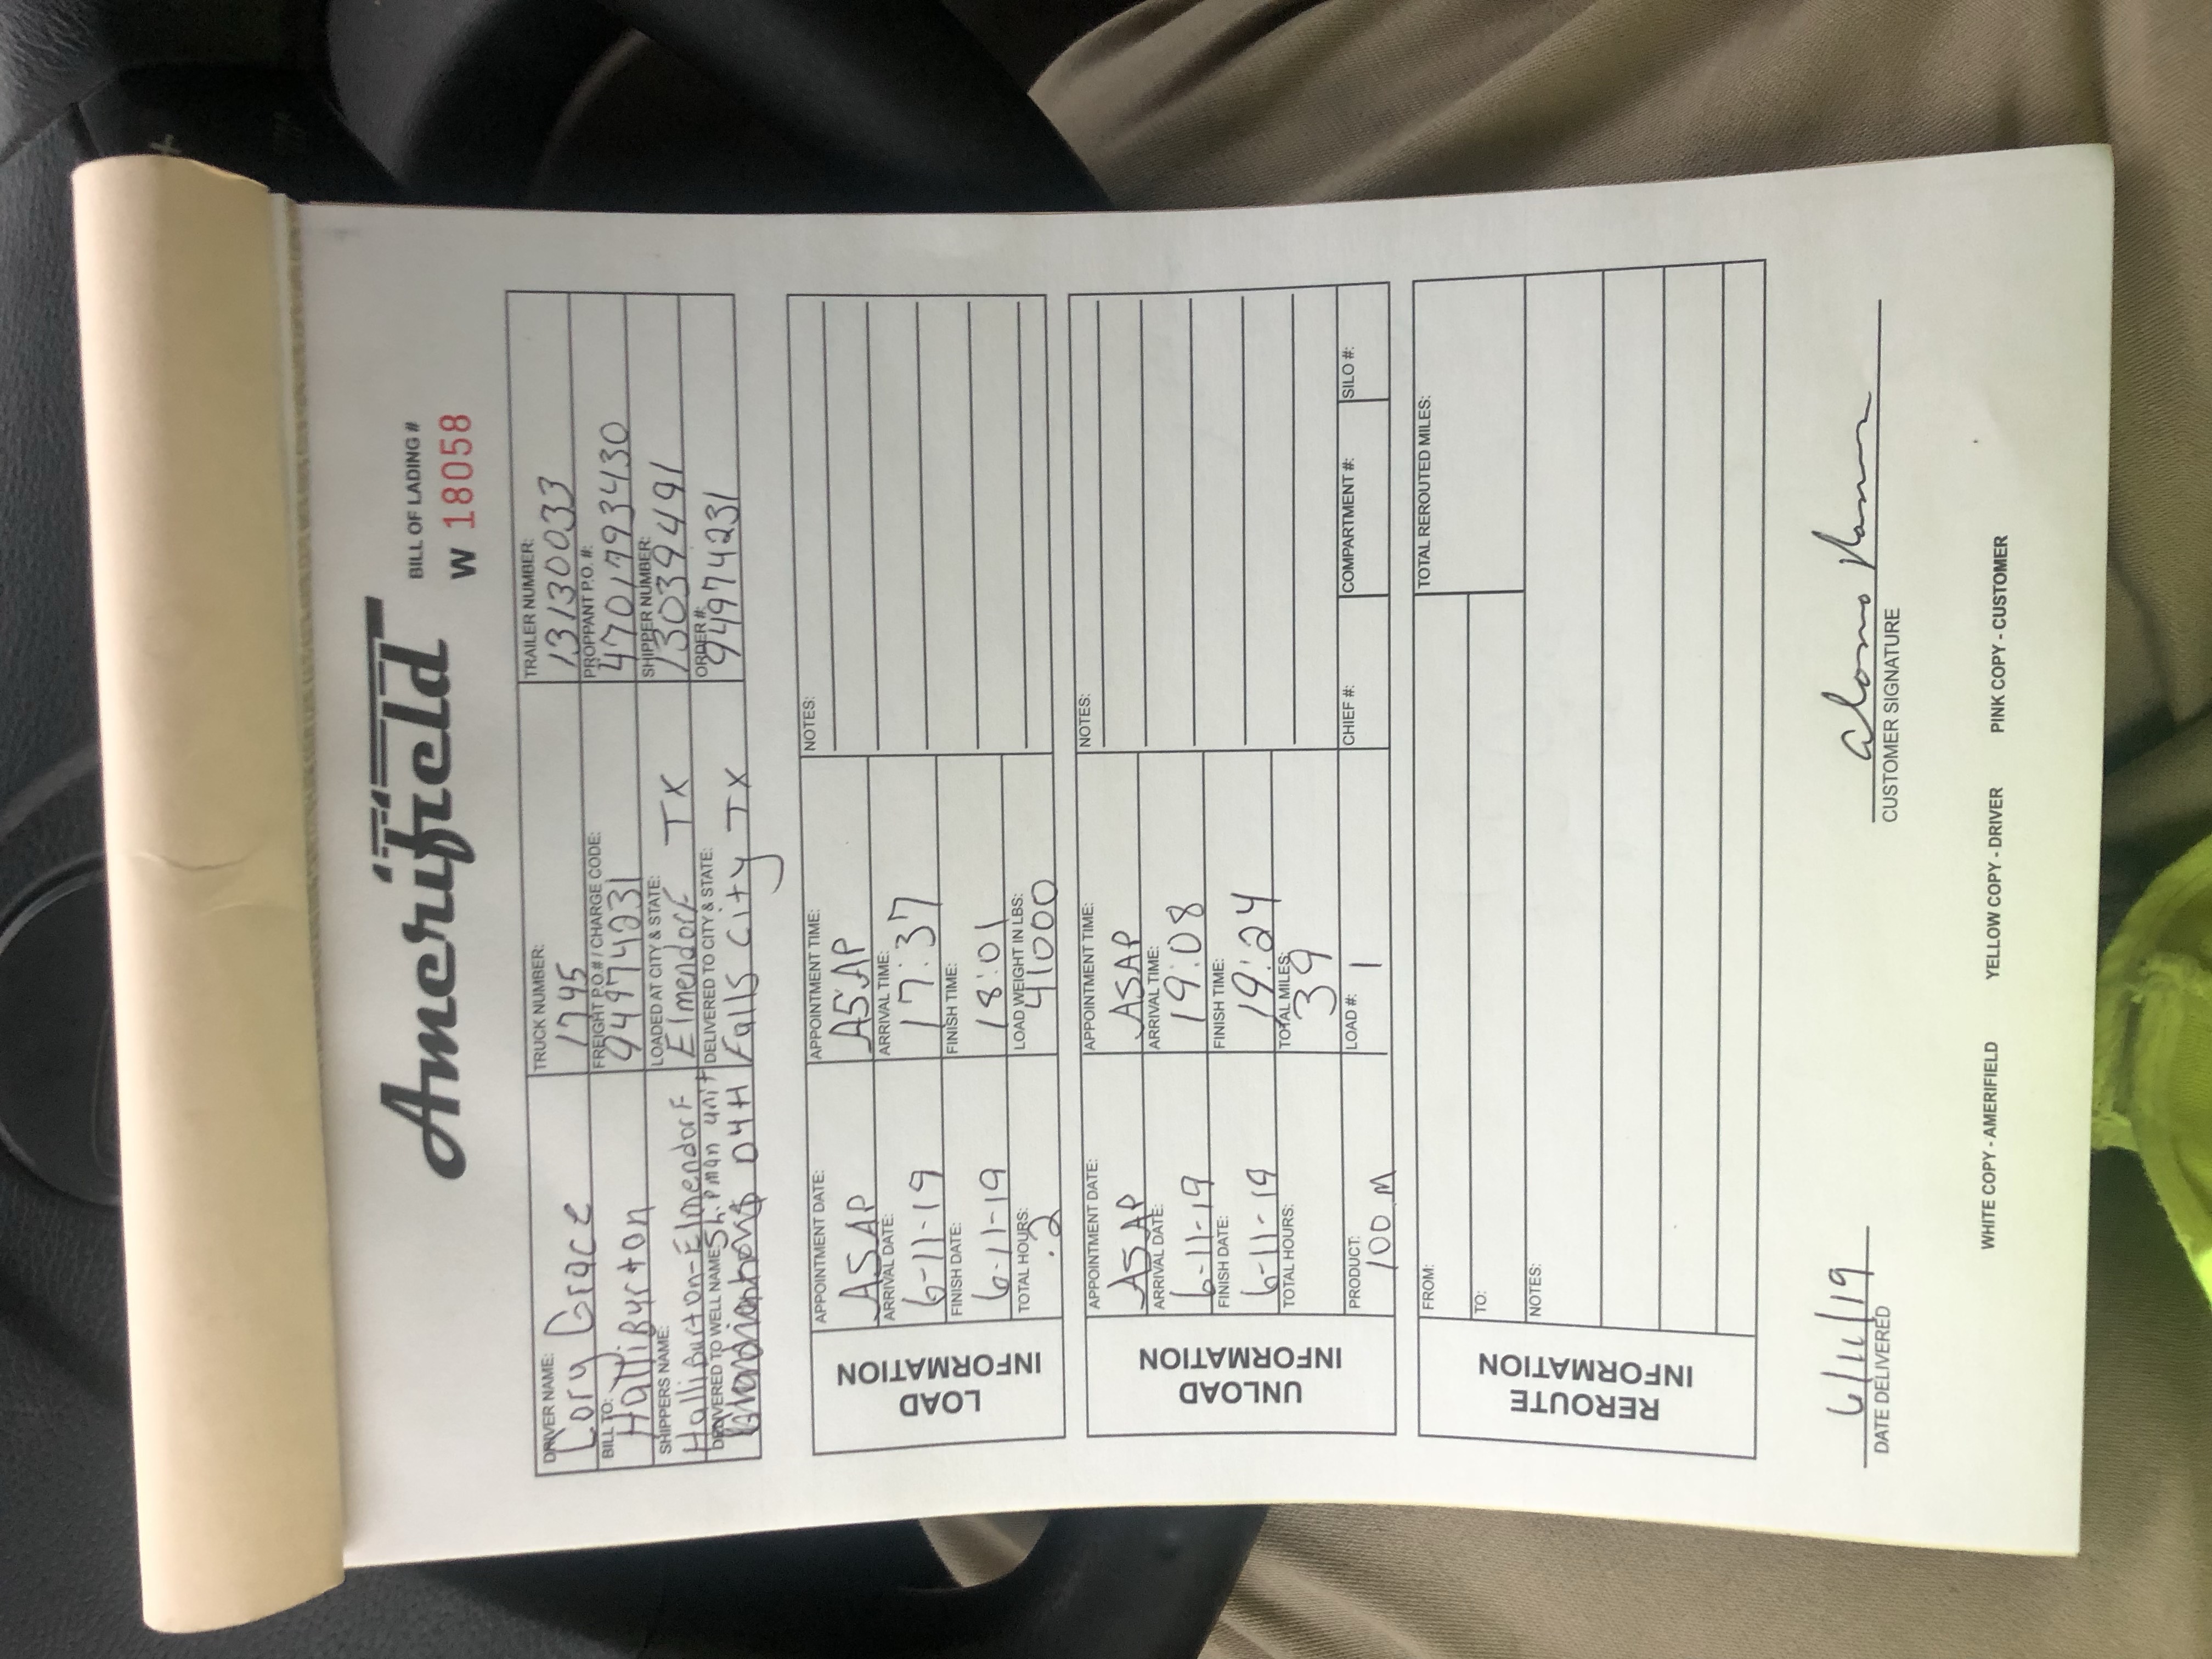 Amerifield
BILL OF LADING #
W 18058
DRIVER NAME: Cory Grace
TRUCK NUMBER: 1745
TRAILER NUMBER: 13130033
BILL TO: HalliBurton
FREIGHT P.O.# / CHARGE CODE: 94974231
PROPPANT P.O. #: 4701793430
SHIPPERS NAME: HalliBurton-Elmendorf
LOADED AT CITY & STATE: Elmendorf TX
SHIPPER NUMBER: 13039491
DELIVERED TO WELL NAME: Shipman unit
04H
DELIVERED TO CITY & STATE: Falls City TX
ORDER #: 94974231
LOAD INFORMATION
APPOINTMENT DATE: ASAP
APPOINTMENT TIME: ASAP
NOTES:
ARRIVAL DATE: 6-11-19
ARRIVAL TIME: 17:37
FINISH DATE: 6-11-19
FINISH TIME: 18:01
TOTAL HOURS: .2
LOAD WEIGHT IN LBS: 41000
UNLOAD INFORMATION
APPOINTMENT DATE: ASAP
APPOINTMENT TIME: ASAP
NOTES:
ARRIVAL DATE: 6-11-19
ARRIVAL TIME: 19:08
FINISH DATE: 6-11-19
FINISH TIME: 19:24
TOTAL HOURS:
TOTAL MILES: 39
PRODUCT: 100 M
LOAD #: 1
CHIEF #:
COMPARTMENT #:
SILO #:
REROUTE INFORMATION
FROM:
TOTAL REROUTED MILES:
TO:
NOTES:
6/11/19
DATE DELIVERED
CUSTOMER SIGNATURE
WHITE COPY - AMERIFIELD YELLOW COPY - DRIVER PINK COPY - CUSTOMER